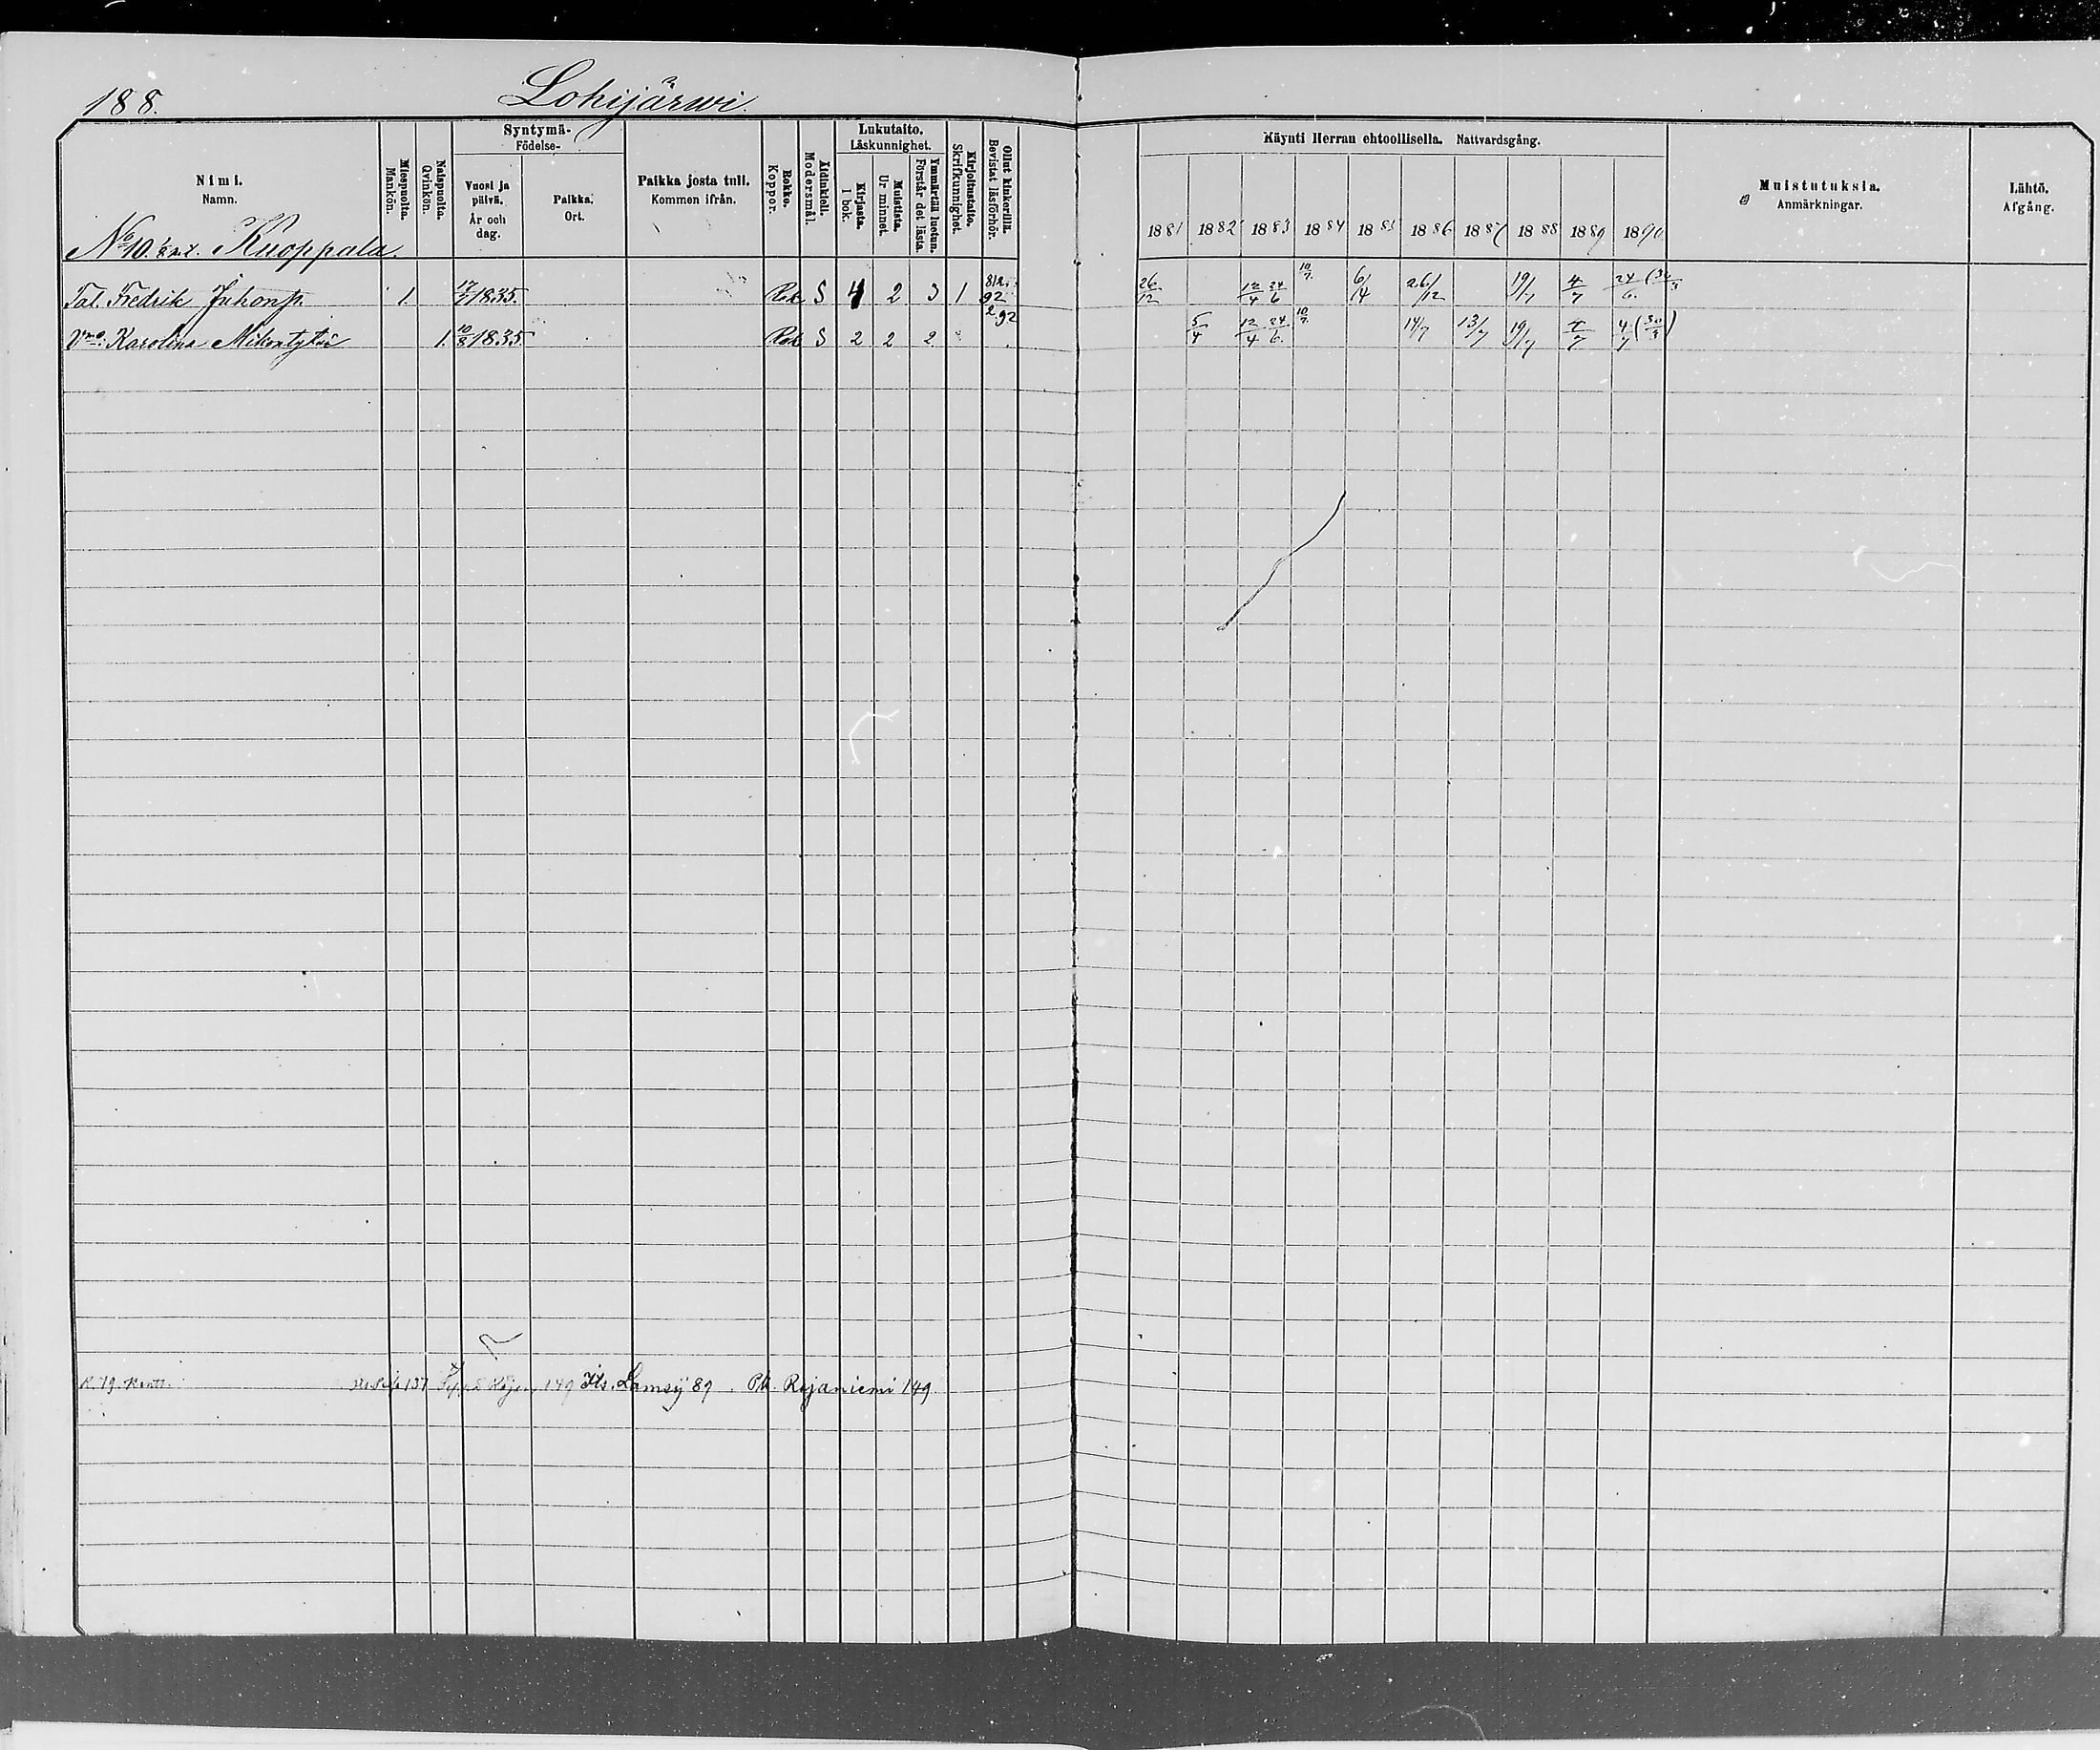 188. Lohijärwi.
Nimi. Namn.
Miespuolta. Mankön.
Naispuolta. Qvinkön.
Syntymä- Födelse-
Vuosi ja päivä. År och dag.
Paikka. Ort.
Paikka josta tuli. Kommen ifrån.
Rokko. Koppor.
Äidinkieli. Modersmål.
Lukutaito. Läskunnighet.
Kirjasta. I bok.
Muistista. Ur minnet.
Ymmärtää luetun. Förstår det lästa.
Kirjoitustaito. Skrifkunnighet.
Ollut kinkerillä. Bevistat läsförhör.
Käynti Herran ehtoollisella. Nattvardsgång.
1881 1882 1883 1884 1885 1886 1887 1888 1889 1890
Muistutuksia. Anmärkningar.
Lähtö. Afgång.
No 10. Kuoppala.
Tal. Fredrik Juhonp. 1. 17/7 1835. Rok S 4 2 3 1 92 26/12 12/4 24/6 10/7. 6/4 26/12 19/7 4/7 24/6.
Vmo: Karolina Mikontytär 1. 10/8 1835. Rok S 2 2 2 2.92 5/4 12/4 24/6. 10/7. 14/7 13/7 19/7 4/7 4/7 (30/3)
R. 79. 137 149 Its. Lamsij 89. Pk. Rojaniemi 149.